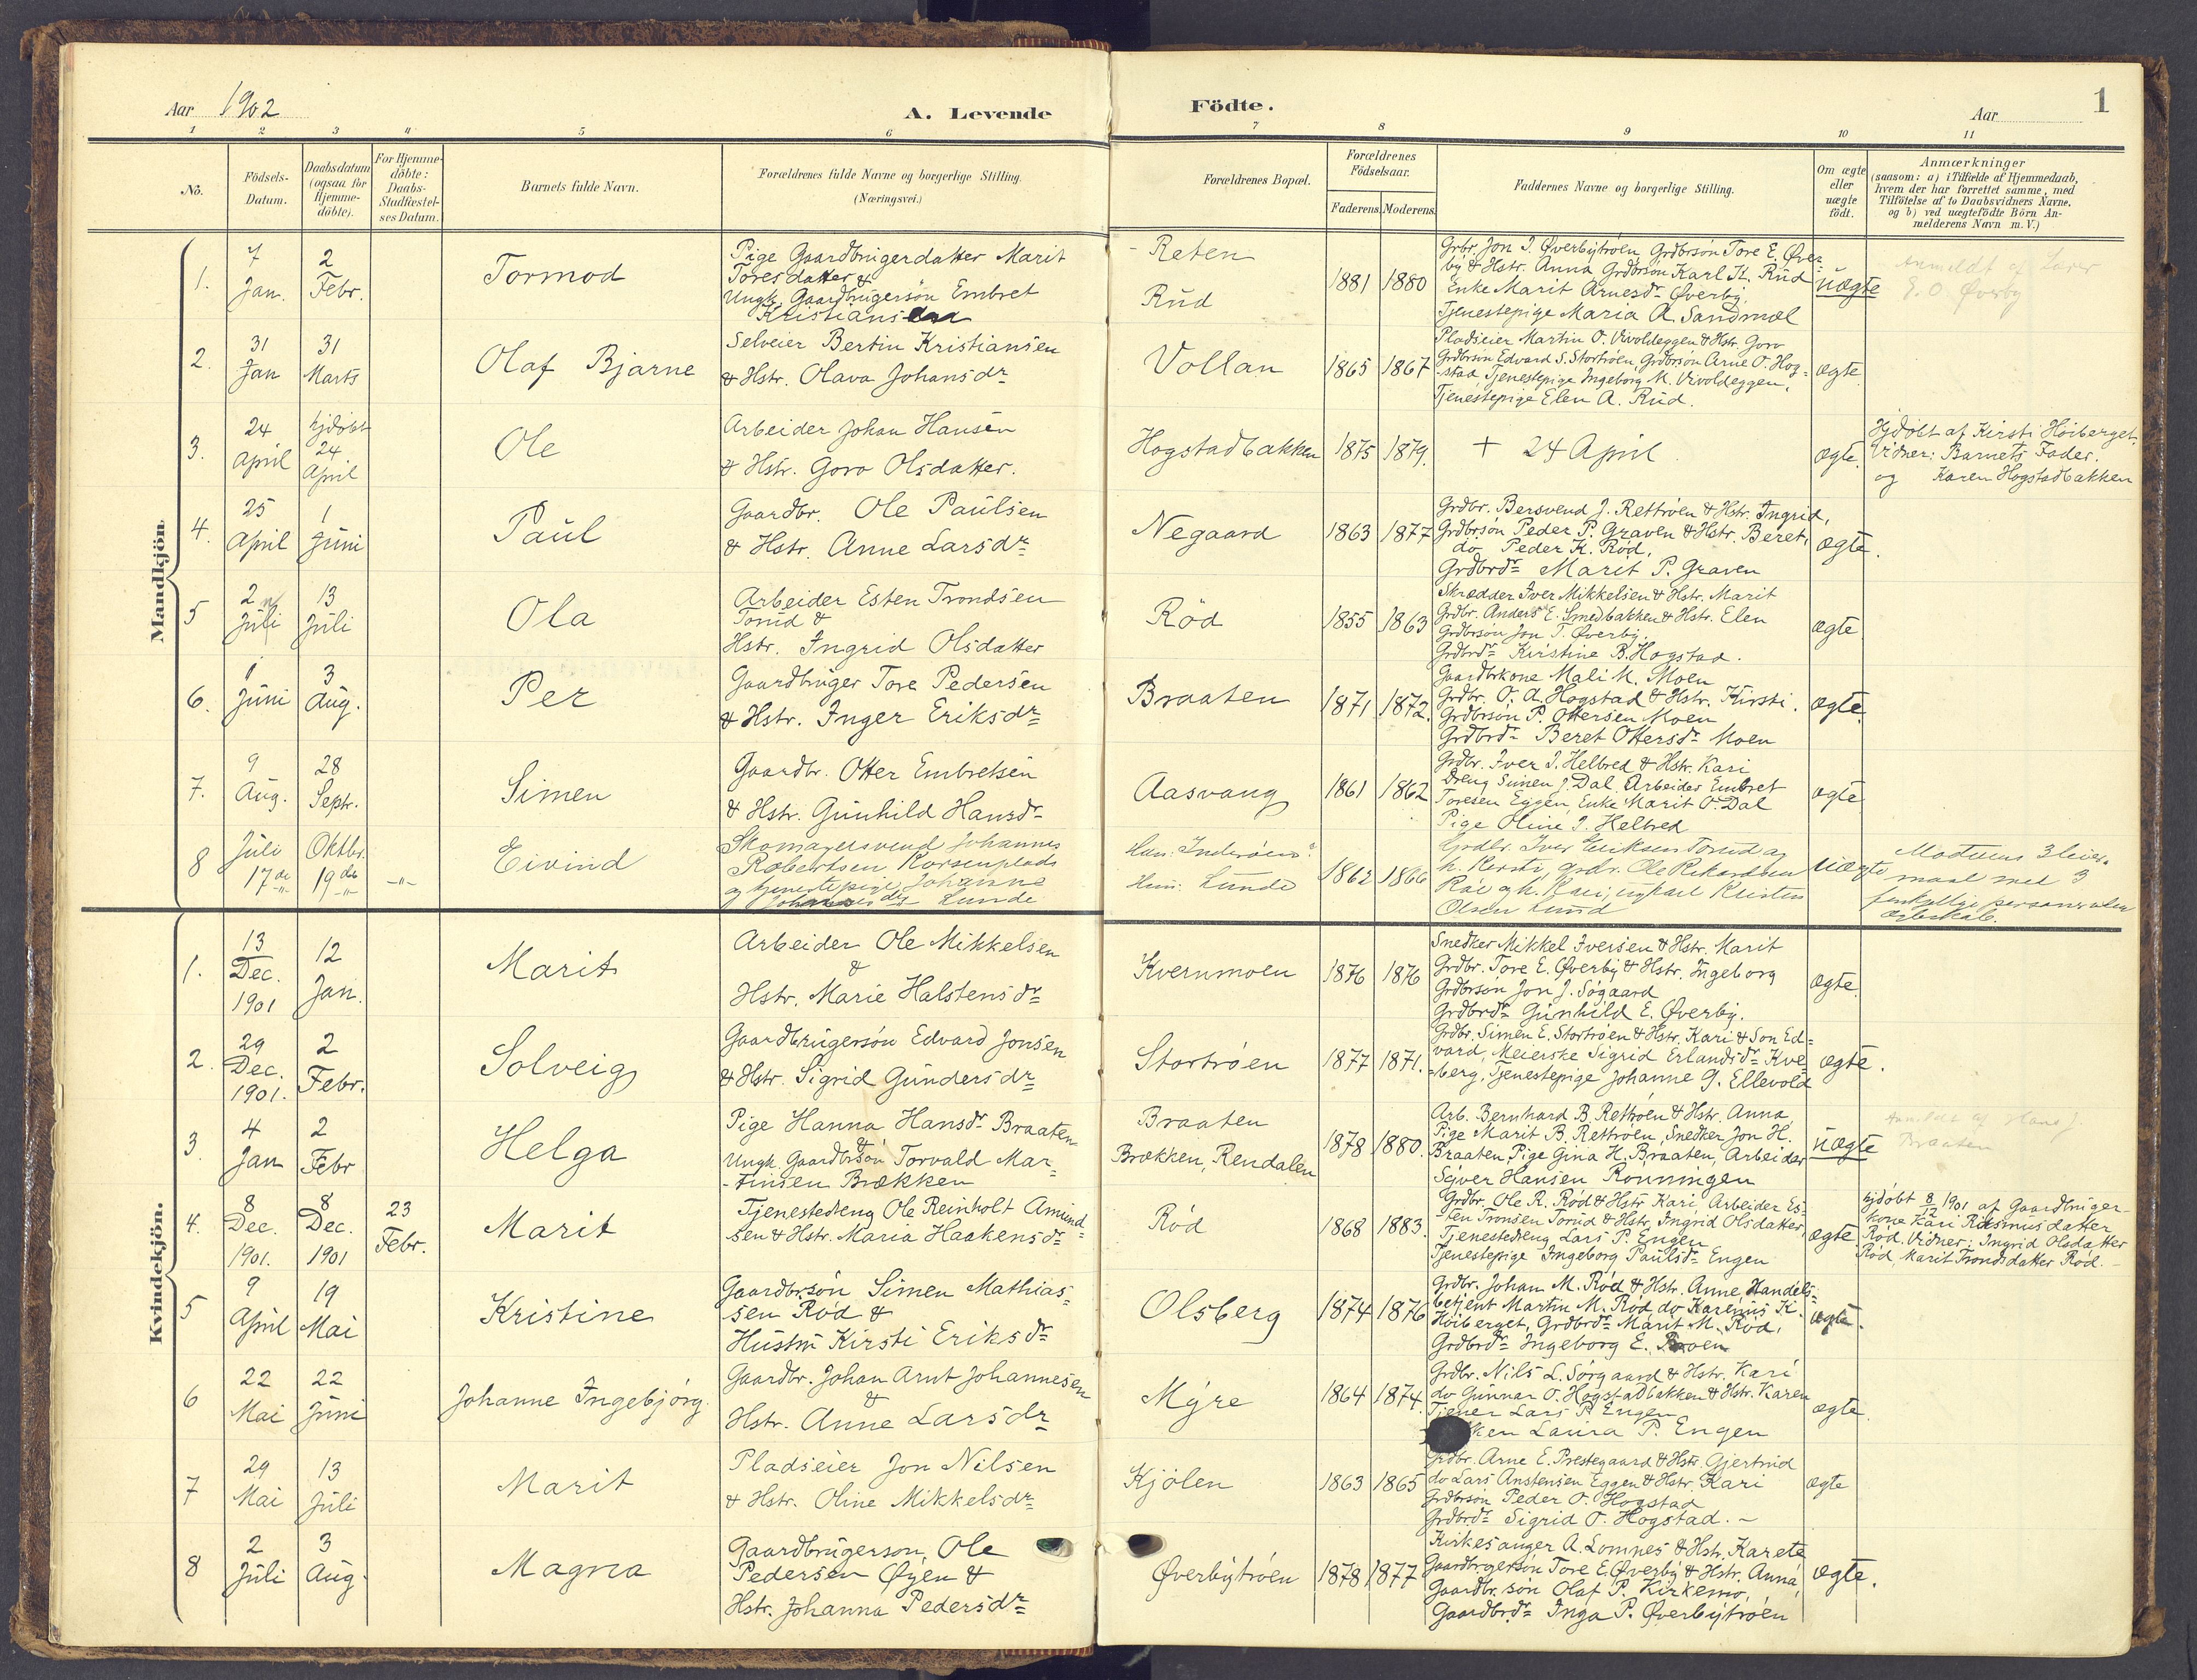 Aar 1902
A. Levende
Födte.
Aar
1
1 2 3 4 5 6 7 8 9 10 11
No.
Födsels-
Datum.
Daabsdatum
(ogsaa for
Hjemme-
döbte).
For Hjemme-
döbte:
Daabs-
Stadfæstel-
ses Datum.
Barnets fulde Navn.
Forældrenes fulde Navne og borgerlige Stilling.
(Næringsvei.)
Forældrenes Bopæl.
Forældrenes
Födselsaar.
Faderens.
Moderens.
Faddernes Navne og borgerlige Stilling.
Om ægte
eller
uægte
födt.
Anmærkninger
(saasom: a) i Tilfælde af Hjemmedaab,
hvem der har forrettet samme, med
Tilföielse af to Daabsvidners Navne,
og b) ved uægtefödte Börn An-
melderens Navn m. V.)
Mandkjön
1.
7
Jan.
2
Febr.
Tormod
Pige Gaardbrugerdatter Marit
Toresdatter &
Ungk. Gaardbrugersön Embret
Kristiansen
- Reten
Rud
1881 1880
Grbr. Jon J. Øverbytröen Grdbrsön Tore E. Øver-
by & Hstr. Anna Grdbrsön Karl K. Rud
Enke Marit Arnesdr Øverby.
Tjenestepige Maria A. Sandmæl
uægte
Anmeldt af Lærer
E. O. Øverby
2.
31
Jan
31
Marts
Olaf Bjarne
Selveier Bertin Kristiansen
& Hstr. Olava Johansdr
Vollan
1865 1867
Pladseier Martin O. Vivoldeggen & Hstr. Goro
Grdbrsön Edvard S. Stortröen, Grdbrsön Arne O. Hog-
stad, Tjenestepige Ingeborg M. Vivoldeggen,
Tjenestepige Elen A. Rud.
ægte
3.
24
April
hjdöbt
24
April
Ole
Arbeider Johan Hansen
& Hstr. Goro Olsdatter.
Hogstadbakken
1875 1879.
+ 24 April
ægte.
Hjdöbt af Kirsti Höiberget.
Vidner: Barnets Fader.
og Karen Hogstadbakken
4.
25
April
1
Juni
Paul
Gaardbr. Ole Paulsen
& Hstr. Anne Larsdr
Negaard
1863 1877
Grdbr. Bersvend J. Rettröen & Hstr. Ingrid,
Grdbrsön Peder P. Graven & Hstr. Beret,
do Peder K. Röd,
Grdbrdr Marit P. Graven
ægte.
5
2
Juli
13
Juli
Ola
Arbeider Esten Trondsen
Torud &
Hstr. Ingrid Olsdatter
Röd
1855 1863
Skrædder Iver Mikkelsen & Hstr. Marit
Grdbr. Anders E. Smedbakken & Hstr. Elen
Grdbrsön Jon T. Øverby.
Grdbrdr Kirstine B. Hogstad.
ægte
6.
1
Juni
3
Aug.
Per
Gaardbruger Tore Pedersen
& Hstr. Inger Eriksdr
Braaten
1871 1872.
Gaardbrkone Mali M. Moen
Grdbr. O. A. Hogstad & Hstr. Kirsti.
Grdbrsön P. Ottersen Moen
Grdbrdr Beret Ottersdr Moen
ægte.
7.
9
Aug.
28
Septr.
Simen
Gaardbr. Otter Embretsen
& Hstr. Gunhild Hansdr
Aasvang
1861 1862
Grdbr. Iver J. Helbred & Hstr. Kari
Dreng Simen J. Dal, Arbeider Embret
Toresen Eggen, Enke Marit O. Dal
Pige Oline I. Helbred
ægte
8
Juli
17de
Oktbr.
19de
-"-
Eivind
Skomagersvend Johannes
Robertsen Korsenplads
og tjenestepige Johanne
Lunde
Han: Inderöen?
Hun: Lunde
1862 1866
Grdbr. Iver Eriksen Torud og
h. Kersti, grdr. Ole Rikardsen
Röe og h. Kari, ungkarl Kristen
Olsen Lund
uægte
Moderens 3 leier-
maal med 3
forskjellige personer uden
ægteskab.
Kvindekjön.
1.
13
Dec.
1901
12
Jan.
Marit
Arbeider Ole Mikkelsen
&
Hstr. Marie Halstensdr
Kvernmoen
1876 1876
Snedker Mikkel Iversen & Hstr. Marit
Grdbr. Tore E. Øverby & Hstr. Ingeborg
Grdbrsön Jon J. Sögaard
Grdbrdr Gunhild E. Øverby.
ægte.
2.
29
Dec.
1901.
2
Febr.
Solveig
Gaardbrugersön Edvard Jonsen
& Hstr. Sigrid Gundersdr
Stortröen
1877 1871.
Grdbr. Simen E. Stortröen & Hstr. Kari & Son Ed-
vard, Meierske Sigrid Erlandsdr Kve-
berg, Tjenestepige Johanne G. Ellevold
ægte.
3.
4
Jan
2
Febr
Helga
Pige Hanna Hansdr Braaten
&
Ungk. Gaardbrsön Torvald Mar-
tinsen Brækken
Braaten
Brækken, Rendalen
1878 1880.
Arb. Bernhard B. Rettröen & Hstr. Anna
Pige Marit B. Rettröen, Snedker Jon H.
Braaten, Pige Gina H. Braaten, Arbeider
Syver Hansen Rönningen
uægte
Anmeldt af Hans J.
Braaten
4.
8
Dec.
1901.
8
Dec.
1901
23
Febr.
Marit
Tjenestedreng Ole Reinholt Amund-
sen & Hstr. Maria Haakensdr
Röd
1868 1883.
Grdbr. Ole R. Röd & Hstr Kari, Arbeider Es-
ten Tronsen Torud & Hstr. Ingrid Olsdatter,
Tjenestedreng Lars P. Engen
Tjenestepige Ingeborg Paulsdr Engen
ægte.
hjdöbt 8/12 1901 af Gaardbruger-
kone Kari Rasmusdatter
Röd. Vidner: Ingrid Olsdatter
Röd, Marit Trondsdatter Röd.
5
9
April
19
Mai
Kristine
Gaardbrsön Simen Mathias-
sen Röd &
Hustru Kirsti Eriksdr
Olsberg
1874 1876
Grdbr. Johan M. Röd & Hstr. Anne, Handels-
betjent Martin M. Röd, do Karenus K.
Höiberget, Grdbrdr Marit M. Röd,
Grdbrdr Ingeborg E. Moen
ægte.
6
22
Mai
22
Juni
Johanne Ingebjörg.
Gaardbr. Johan Arnt Johannesen
&
Hstr. Anne Larsdr
Myre
1864 1874.
Grdbr. Nils L. Sörgaard & Hstr. Kari
do Gunnar O. Hogstadbakken & Hstr. Karen
Tjener Lars P. Engen
ken Laura P. Engen
ægte.
7
29
Mai
13
Juli
Marit
Pladseier Jon Nilsen
& Hstr. Oline Mikkelsdr
Kjölen
1863 1865
Grdbr. Arne E. Prestegaard & Hstr. Gjertrud
do Lars Anstensen Eggen & Hstr. Kari
Grdbrsön Peder O. Hogstad
Grdbrdr Sigrid O. Hogstad. -
ægte
8
2
Juli
3
Aug.
Magna
Gaardbrugersön Ole
Pedersen Øyen &
Hstr. Johanna Pedersdr
Øverbytröen
1878 1877
Kirkesanger A. Lomnes & Hstr. Karete
Gaardbrugersön Tore E. Øverby & Hstr. Anna,
Gaardbr. sön Olaf P. Kirkemo,
Gaardbrdr Inga P. Øverbytröen
ægte.